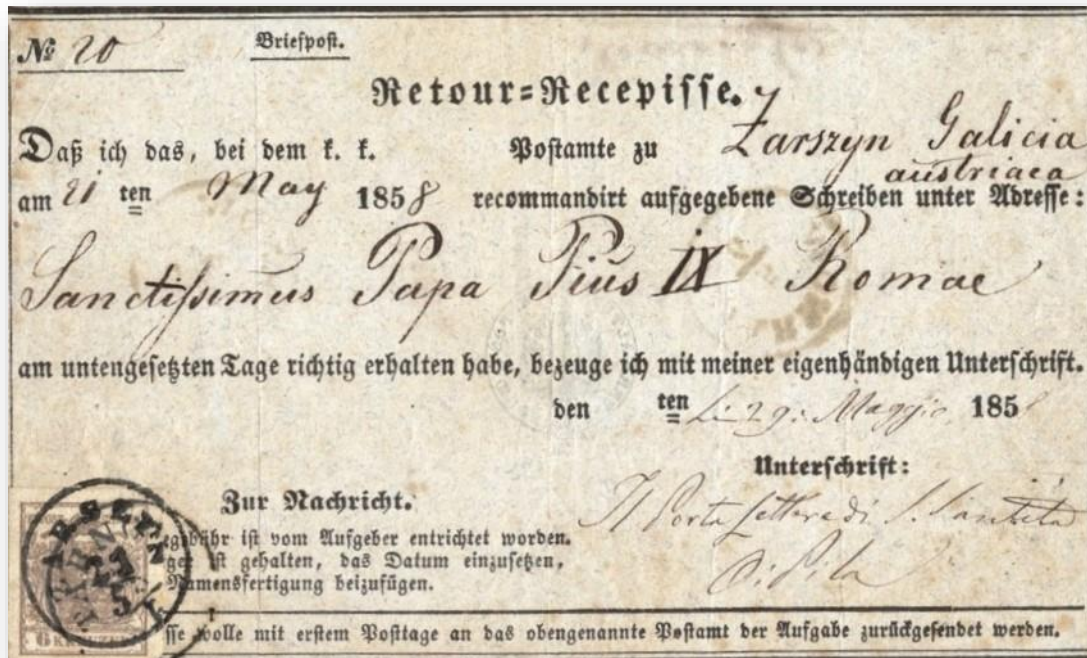 № 20 Briefpost.
Retour=Recepisse.
Daß ich das, bei dem k. k. Postamte zu Zarszyn Galicia
austriaca
am 21 ten May 1858 recommandirt aufgegebene Schreiben unter Adresse:
Sanctissimus Papa Pius IX Romae
am untengesetzten Tage richtig erhalten habe, bezeuge ich mit meiner eigenhändigen Unterschrift.
den ten Li 29. Maggio 1858
Unterschrift:
Il Porta lettere di S. Santità
Zur Nachricht.
gebühr ist vom Aufgeber entrichtet worden.
ger ist gehalten, das Datum einzusetzen,
Namensfertigung beizufügen.
6 KREUZER
sse wolle mit erstem Posttage an das obengenannte Postamt der Aufgabe zurückgesendet werden.